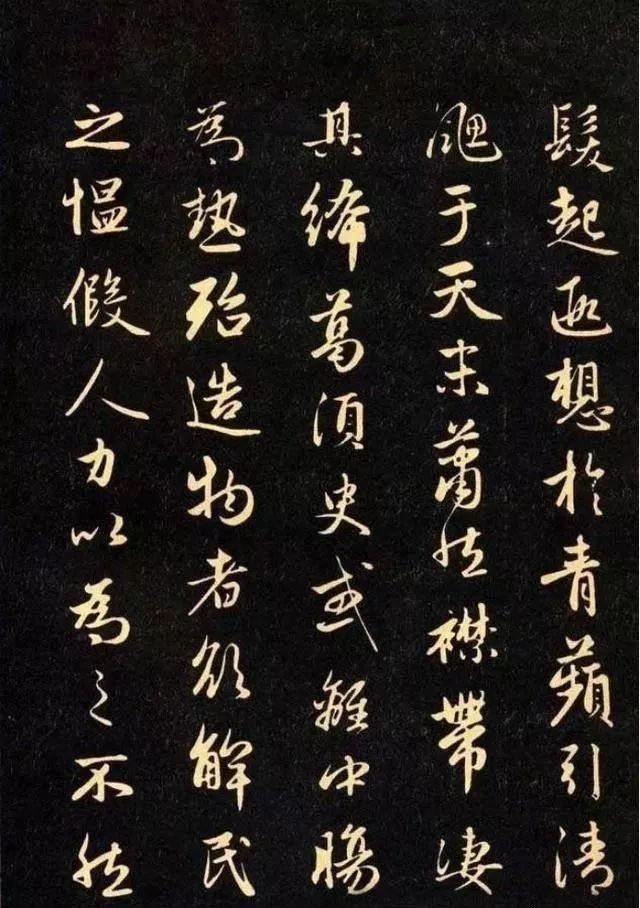 髮起遐想於青蘋引清
颸于天末蕭然襟帶淒
其絺葛須臾或離中
為熱殆造物者欲解民
之慍假人力以為之不然